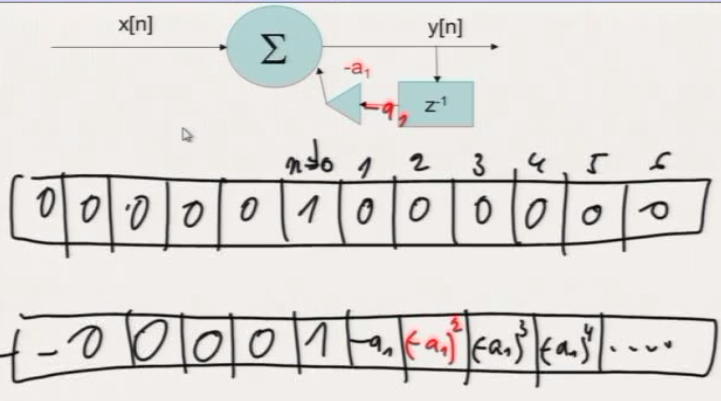 x[n] Σ y[n]
-a₁
-a₁ z⁻¹
n=0 1 2 3 4 5 6
0 0 0 0 0 1 0 0 0 0 0 0
- 0 0 0 0 1 -a₁ (-a₁)² (-a₁)³ (-a₁)⁴ .....